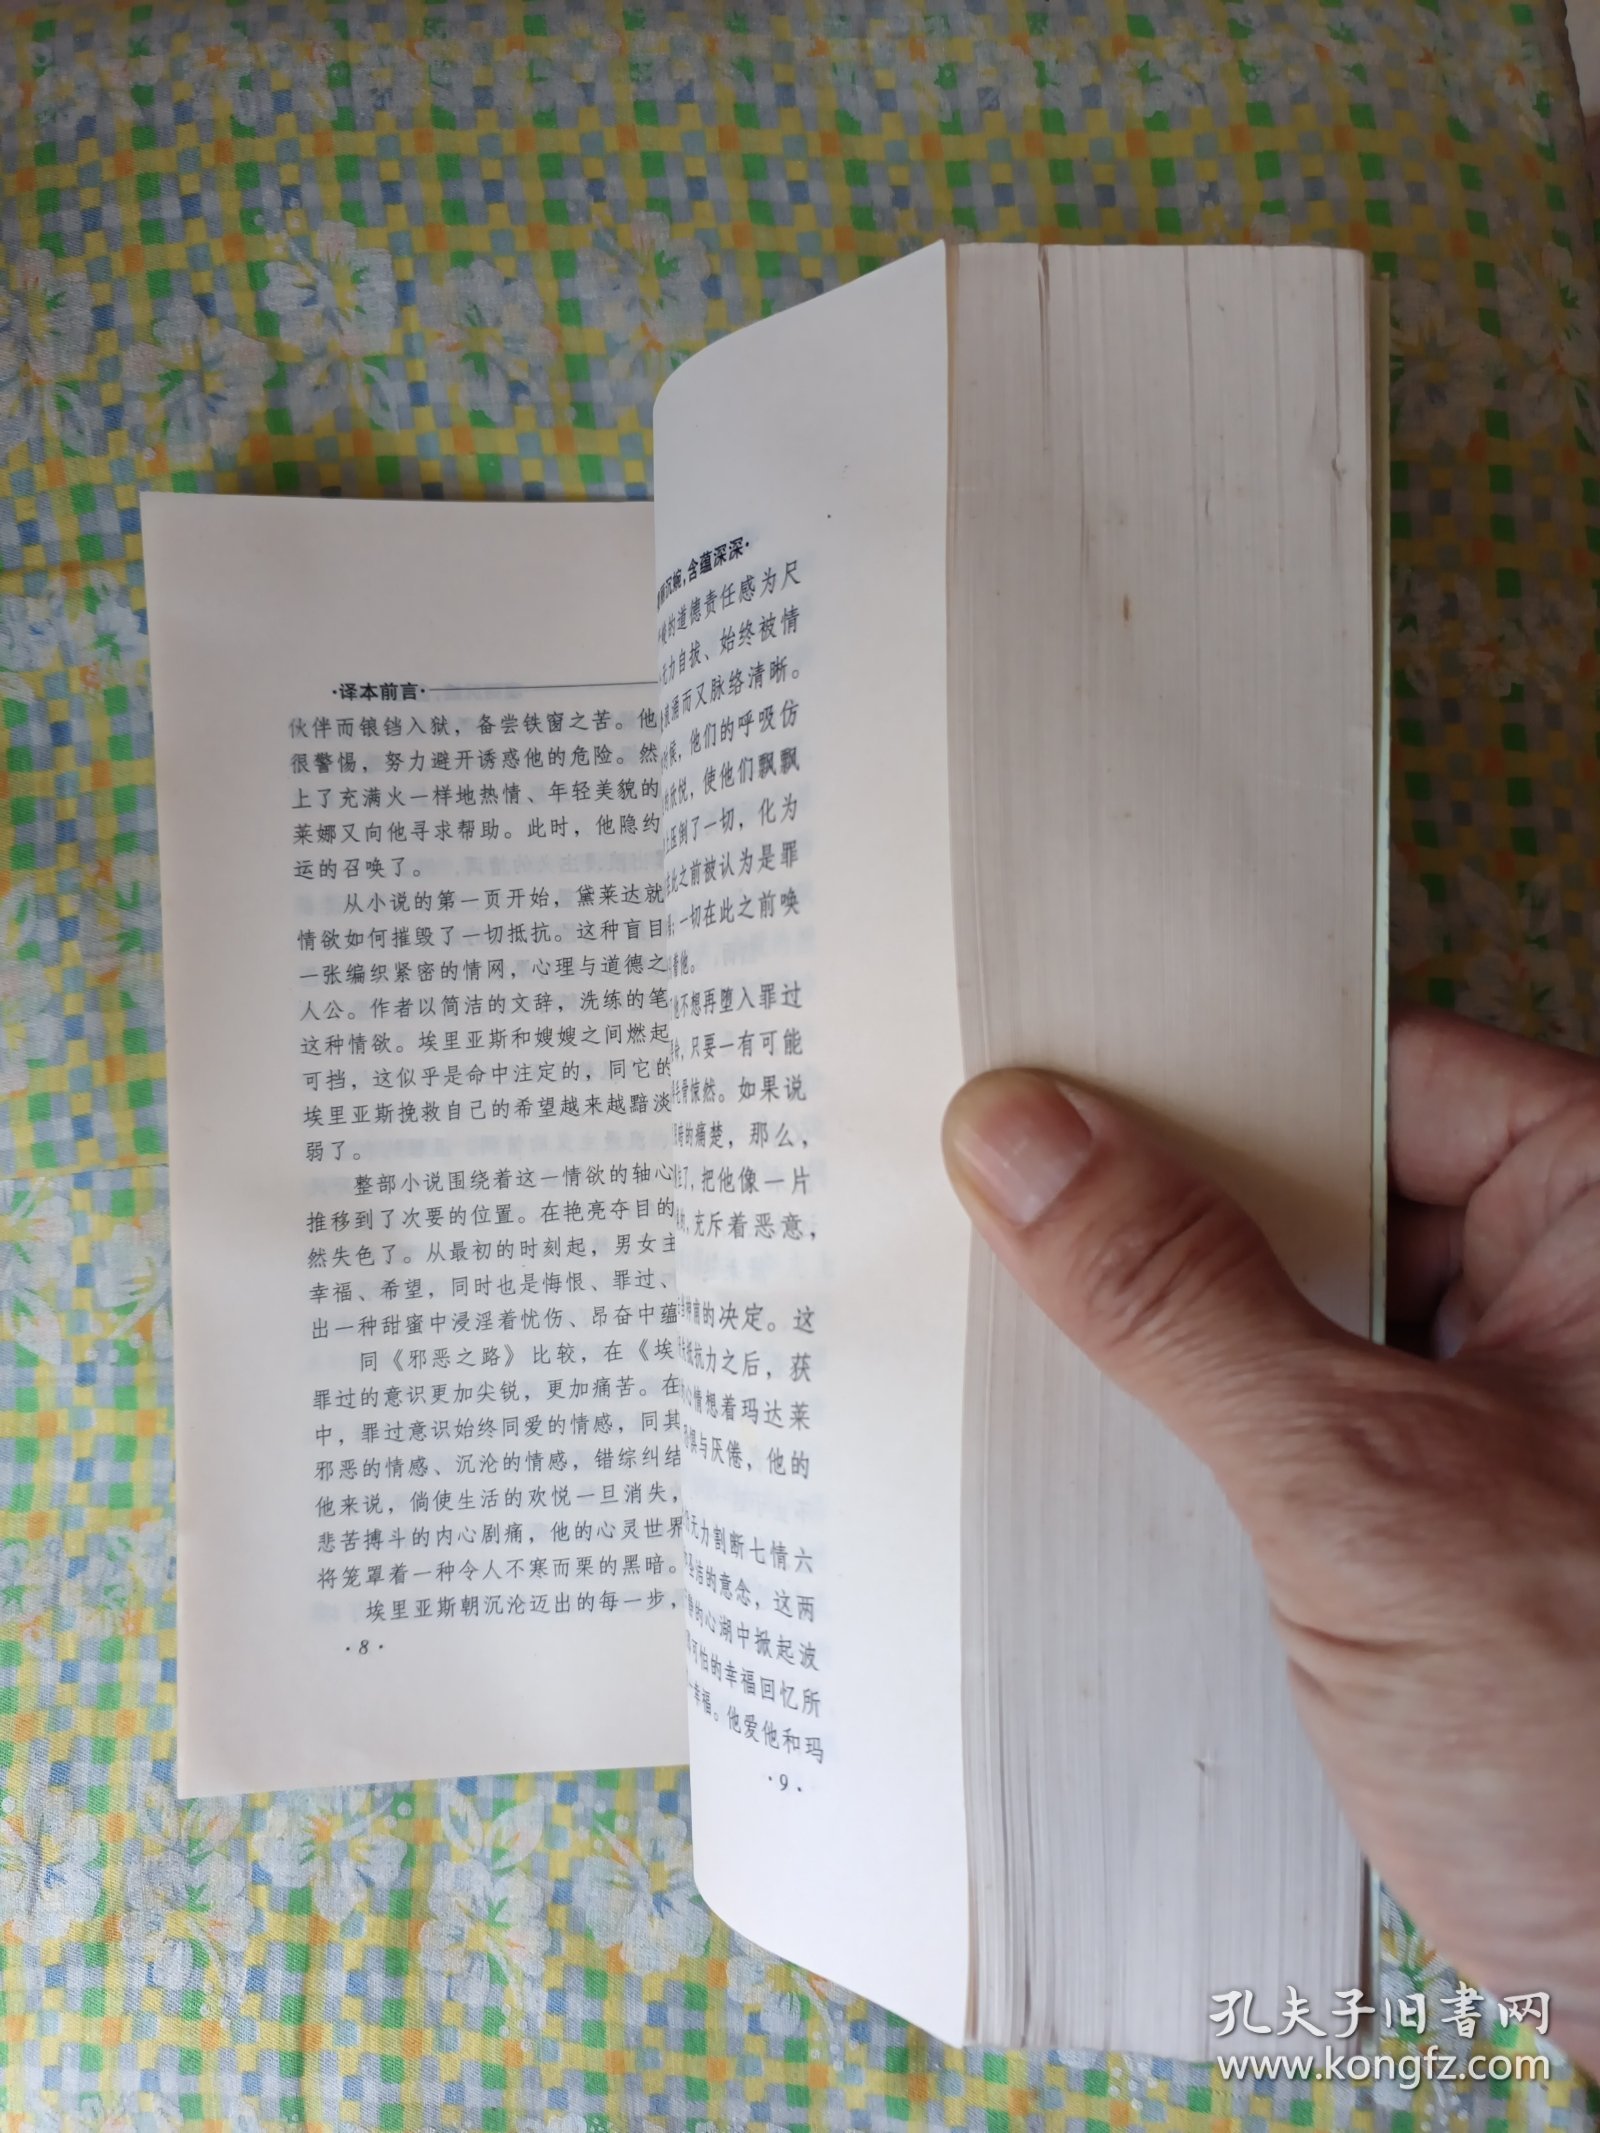 ·译本前言·
伙伴而锒铛入狱，备尝铁窗之苦。他
很警惕，努力避开诱惑他的危险。然
上了充满火一样地热情、年轻美貌的
莱娜又向他寻求帮助。此时，他隐约
运的召唤了。
从小说的第一页开始，黛莱达就
情欲如何摧毁了一切抵抗。这种盲目
一张编织紧密的情网，心理与道德之
人公。作者以简洁的文辞，洗练的笔
这种情欲。埃里亚斯和嫂嫂之间燃起
可挡，这似乎是命中注定的，同它的
埃里亚斯挽救自己的希望越来越黯淡
弱了。
整部小说围绕着这一情欲的轴心
推移到了次要的位置。在艳亮夺目的
然失色了。从最初的时刻起，男女主
幸福、希望，同时也是悔恨、罪过、
出一种甜蜜中浸淫着忧伤、昂奋中蕴
同《邪恶之路》比较，在《埃
罪过的意识更加尖锐，更加痛苦。在
中，罪过意识始终同爱的情感，同其
邪恶的情感、沉沦的情感，错综纠结
他来说，倘使生活的欢悦一旦消失，
悲苦搏斗的内心剧痛，他的心灵世界
将笼罩着一种令人不寒而栗的黑暗。
埃里亚斯朝沉沦迈出的每一步，
·8·
沉婉，含蕴深深·
的道德责任感为尺
无力自拔、始终被情
涌而又脉络清晰。
候，他们的呼吸仿
欣悦，使他们飘飘
压倒了一切，化为
此之前被认为是罪
；一切在此之前唤
着他。
他不想再堕入罪过
，只要一有可能
毛骨悚然。如果说
的痛楚，那么，
了，把他像一片
，充斥着恶意，
的决定。这
抵抗力之后，获
心情想着玛达莱
惧与厌倦，他的
无力割断七情六
圣洁的意念，这两
的心湖中掀起波
可怕的幸福回忆所
幸福。他爱他和玛
·9·
孔夫子旧书网
www.kongfz.com